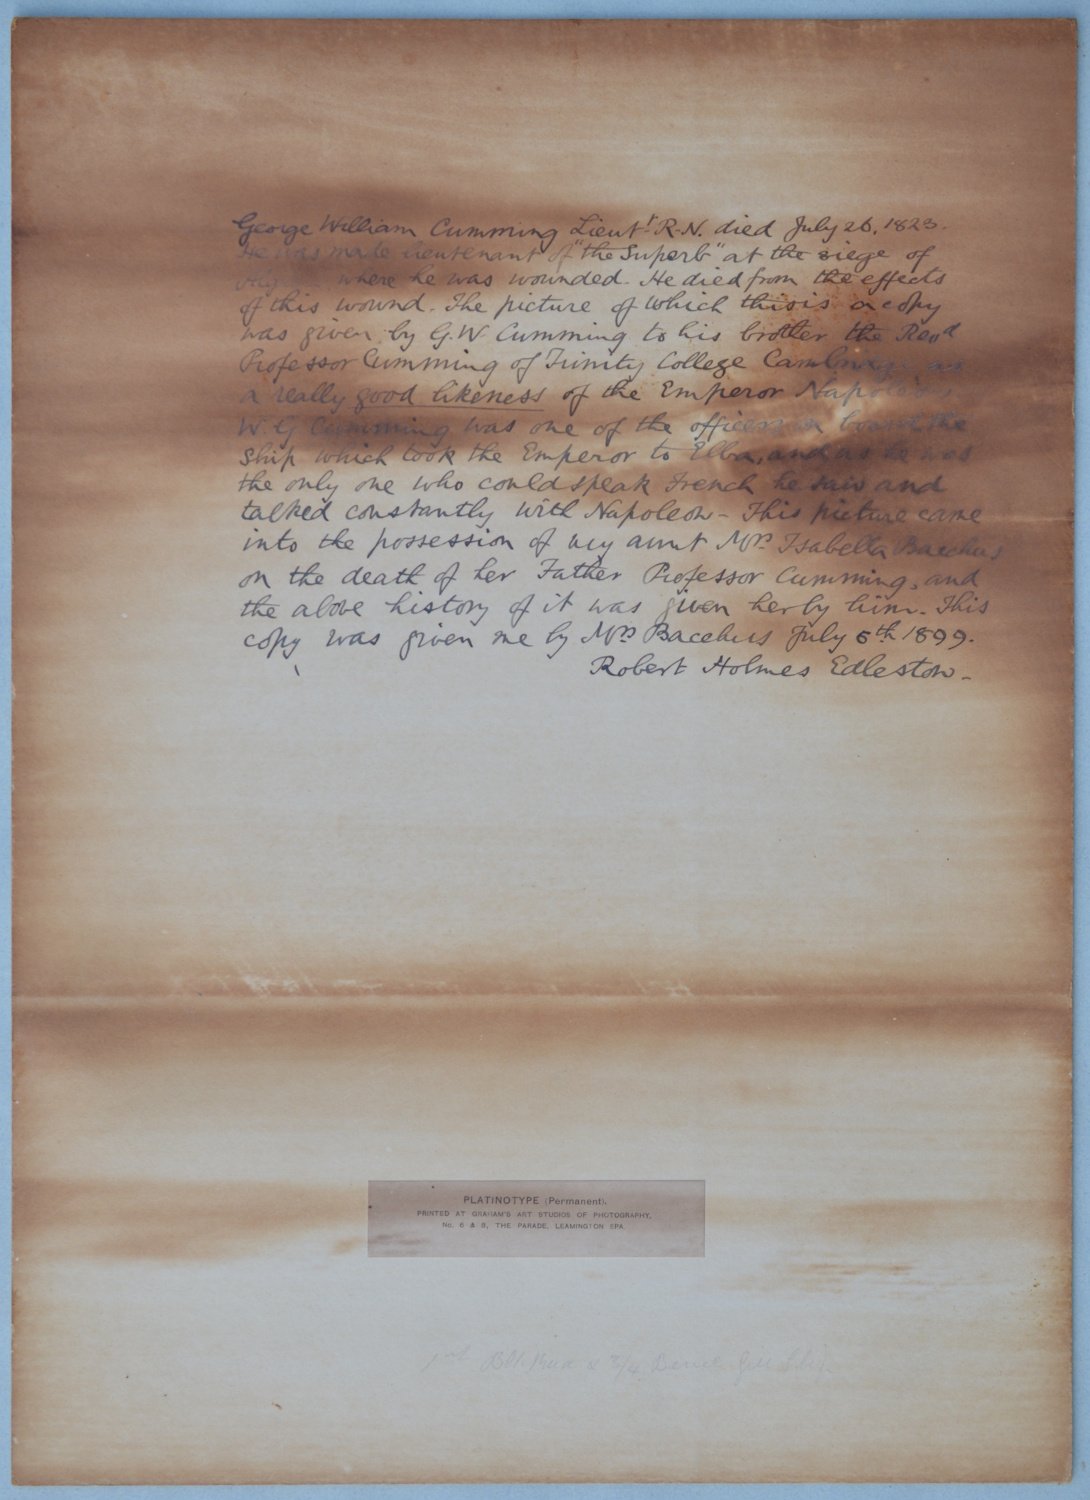 George William Cumming Lieutt R.N. died July 26, 1823.
He was made lieutenant of "the Superb" at the siege of
where he was wounded. He died from the effects
of this wound. The picture of which this is a copy
was given by G.W Cumming to his brother the Revd
Professor Cumming of Trinity College Cambridge as
a really good likeness of the Emperor Napoleon,
W. G Cumming was one of the officers on board the
ship which took the Emperor to Elba, and as he was
the only one who could speak French he saw and
talked constantly with Napoleon - This picture came
into the possession of my aunt Mrs Isabella Bacchus
on the death of her Father Professor Cumming, and
the above history of it was given her by him. This
copy was given me by Mrs Bacchus July 6th 1899.
Robert Holmes Edleston -
PLATINOTYPE (Permanent).
PRINTED AT GRAHAM'S ART STUDIOS OF PHOTOGRAPHY,
No. 6 & 8, THE PARADE, LEAMINGTON SPA.